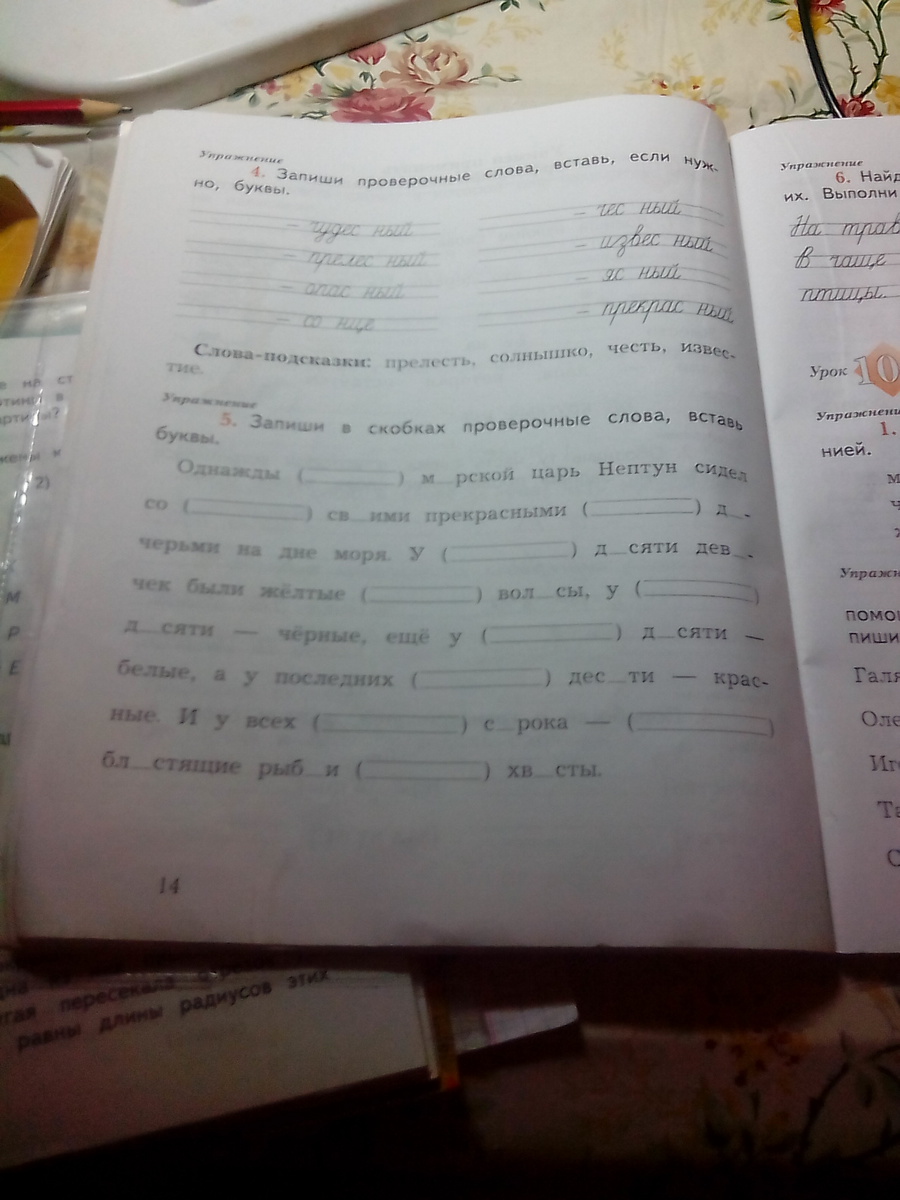 Упражнение
4. Запиши проверочные слова, вставь, если нуж-
но, буквы.
– чудес ный
– прелес ный
– опас ный
– со нце
– чес ный
– извес ный
– яс ный
– прекрас ный
Слова-подсказки: прелесть, солнышко, честь, извес-
тие.
Упражнение
5. Запиши в скобках проверочные слова, вставь
буквы.
Однажды ( ) м_рской царь Нептун сидел
со ( ) св_ими прекрасными ( ) д_-
черьми на дне моря. У ( ) д_сяти дев_-
чек были жёлтые ( ) вол_сы, у ( )
д_сяти — чёрные, ещё у ( ) д_сяти —
белые, а у последних ( ) дес_ти — крас-
ные. И у всех ( ) с_рока — ( )
бл_стящие рыб_и ( ) хв_сты.
14
Упражнение
6. Найд
их. Выполни
На трав
В чаще
птицы.
Урок 10
Упражнени
1.
нией.
м
ч
Упражн
помо
пиши
Галя
Оле
Иго
Та
С
2)
М
Р
Е
пересекала
равны длины радиусов этих